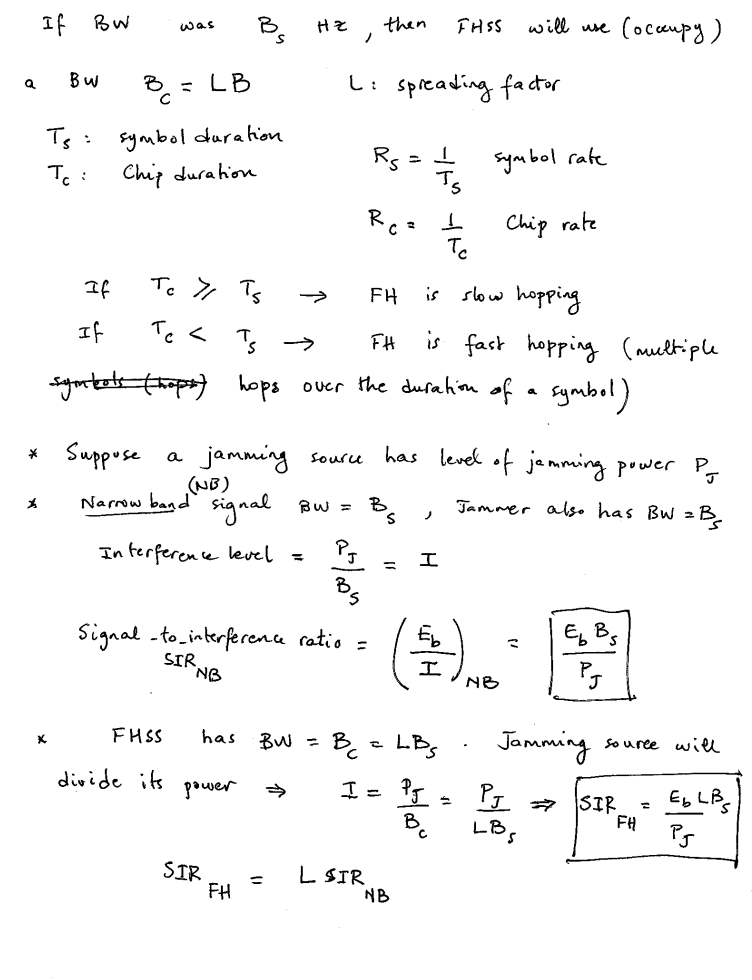 If BW was B_s Hz, then FHSS will use (occupy)
a BW B_c = LB L: spreading factor
T_s: symbol duration
T_c: Chip duration
R_s = 1/T_s symbol rate
R_c = 1/T_c Chip rate
If T_c ⩾ T_s → FH is slow hopping
If T_c < T_s → FH is fast hopping (multiple
symbols (hops) hops over the duration of a symbol)
* Suppose a jamming source has level of jamming power P_J
* Narrow band (NB) signal BW = B_s, Jammer also has BW = B_s
Interference level = P_J/B_s = I
Signal-to-interference ratio = (E_b/I)_NB = E_b B_s/P_J
SIR_NB
* FHSS has BW = B_c = LB_s. Jamming source will
divide its power ⇒ I = P_J/B_c = P_J/LB_s ⇒ SIR_FH = E_b LB_s/P_J
SIR_FH = L SIR_NB